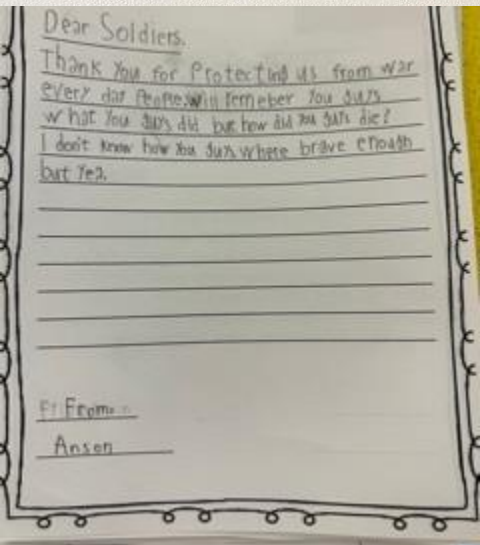 Dear Soldiers.
Thank You for Protecting us from war
every day People will remeber You guys
what You guys did but how did You guys die?
I don't know how You guys where brave enough
but Yea.
From
Anson